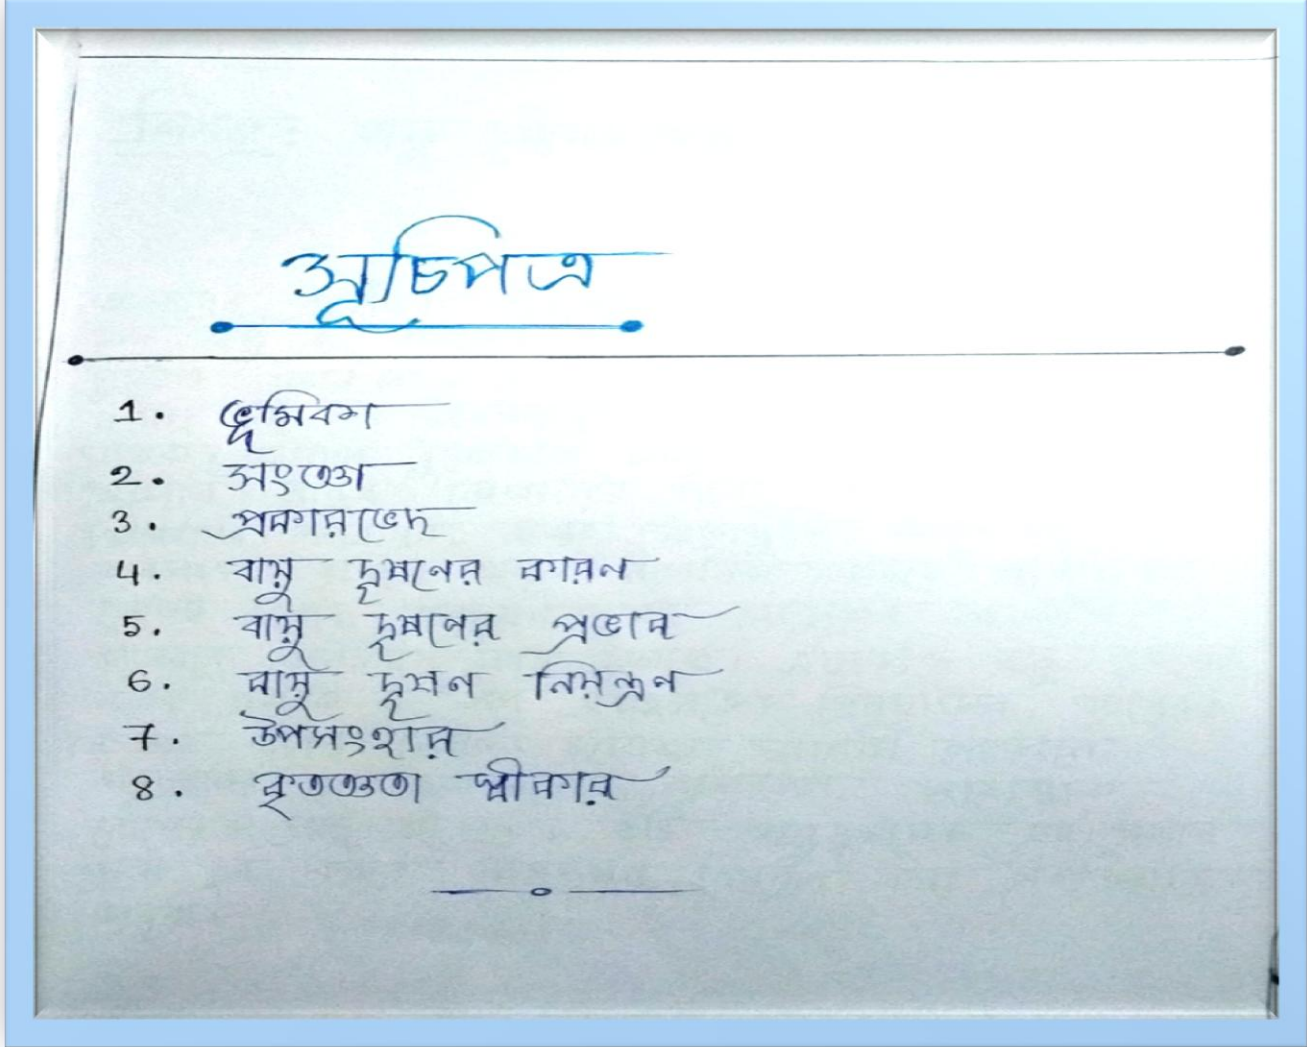 সূচিপত্র
1. ভূমিকা
2. সংজ্ঞা
3. প্রকারভেদ
4. বায়ু দূষণের কারন
5. বায়ু দূষণের প্রভাব
6. বায়ু দূষণ নিয়ন্ত্রণ
7. উপসংহার
8. কৃতজ্ঞতা স্বীকার